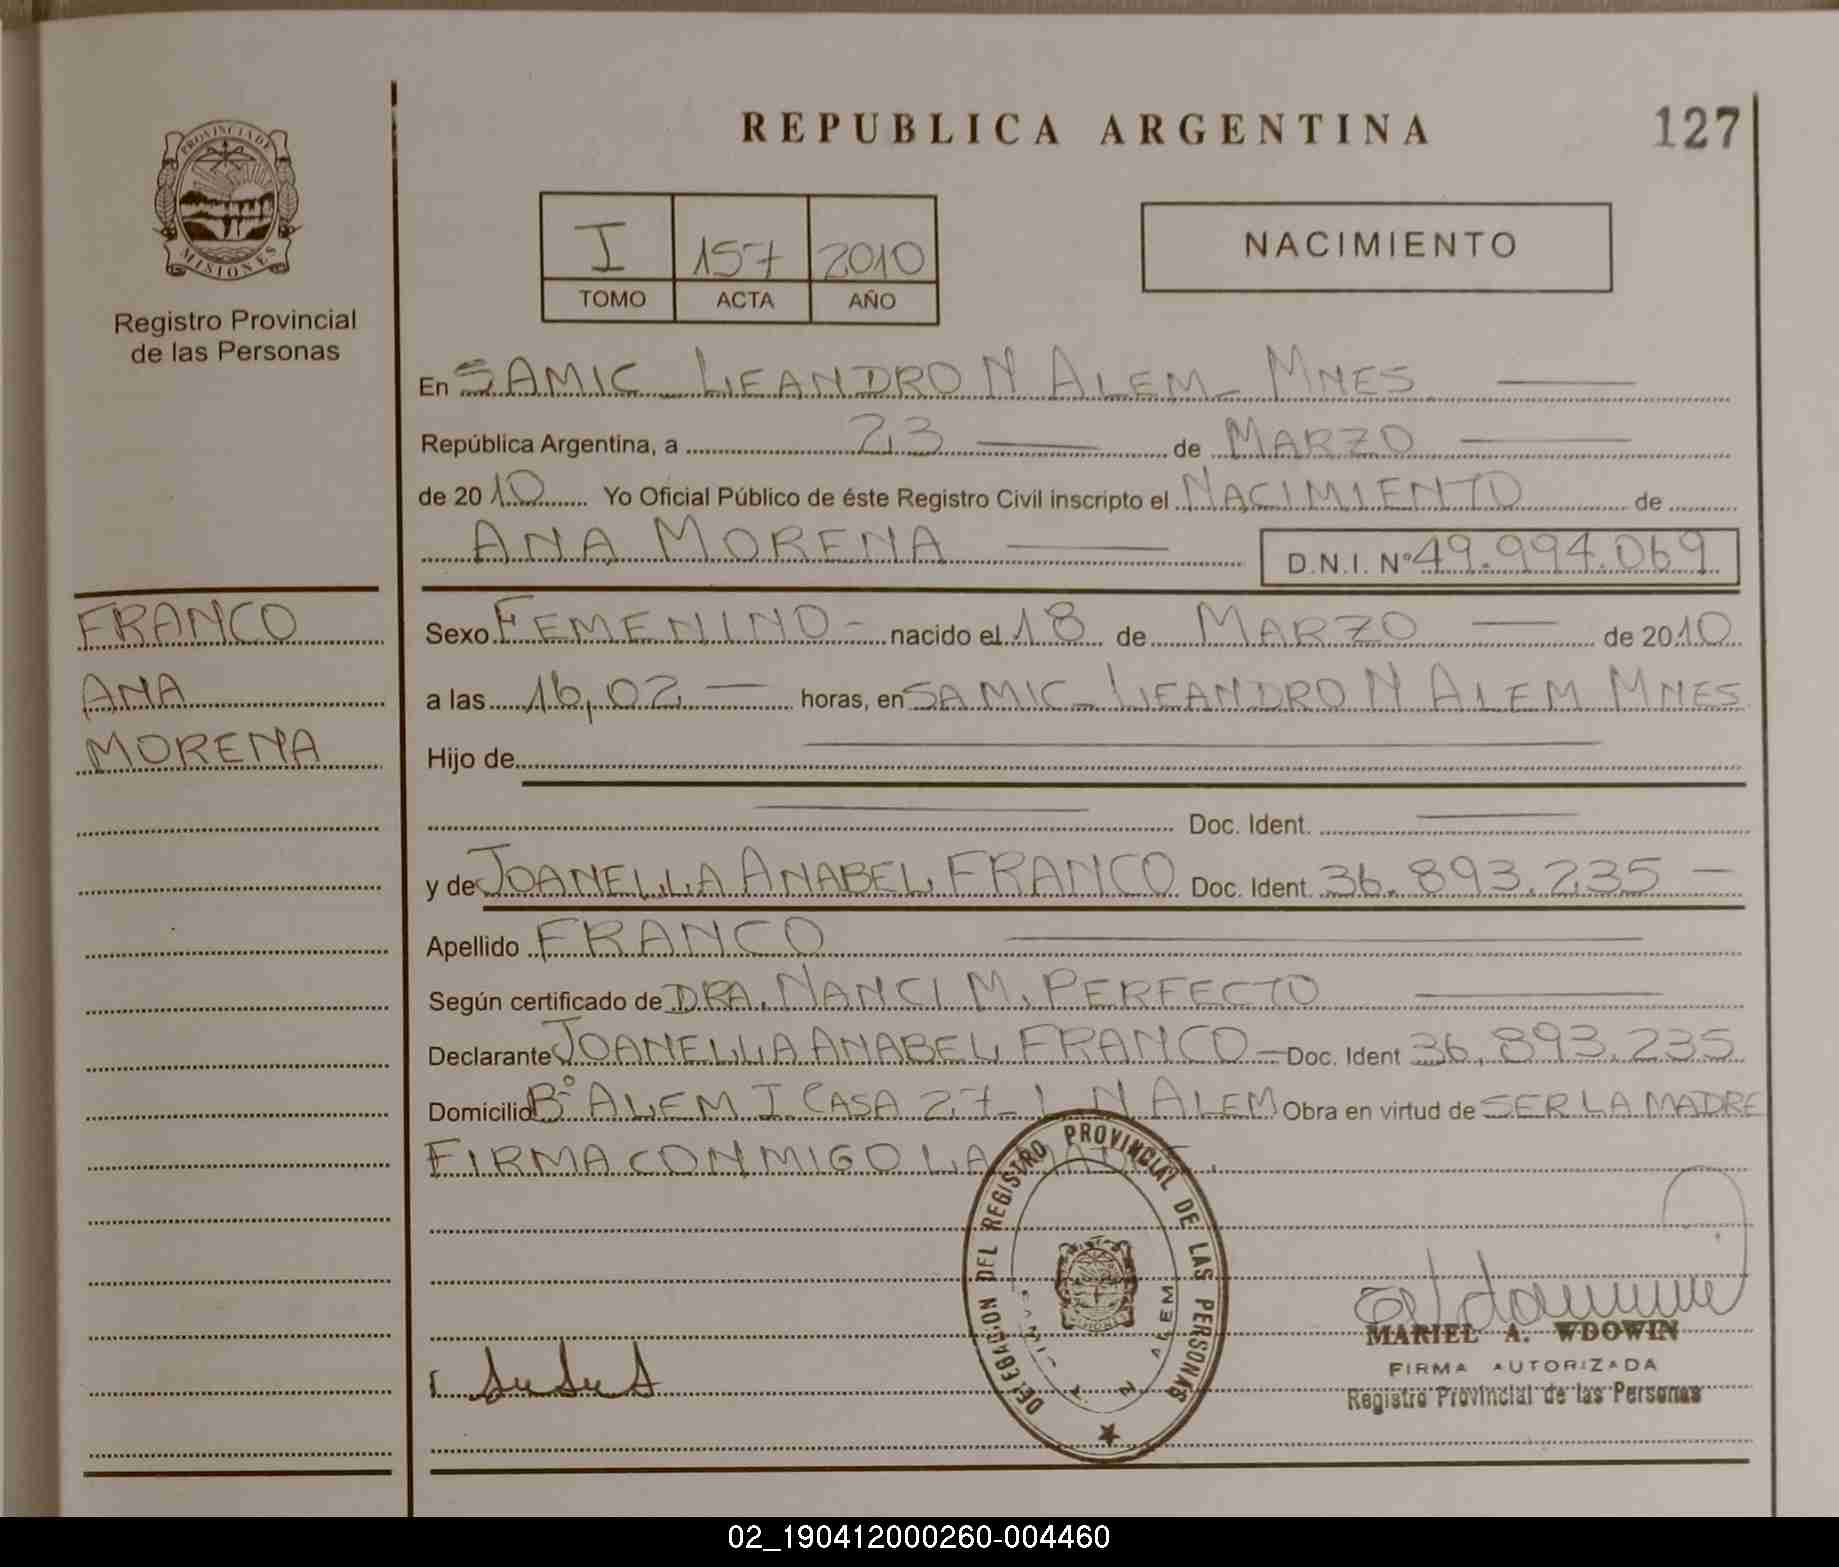 PROVINCIA DE
MISIONES
Registro Provincial
de las Personas
FRANCO
ANA
MORENA
REPUBLICA ARGENTINA
127
I 157 2010
TOMO ACTA AÑO
NACIMIENTO
En SAMIC LEANDRO N ALEM - MNES
República Argentina, a 23 de MARZO
de 2010 Yo Oficial Público de éste Registro Civil inscripto el NACIMIENTO de
ANA MORENA D.N.I. Nº 49.994.069
Sexo FEMENINO - nacido el 18 de MARZO de 2010
a las 16,02 horas, en SAMIC LEANDRO N ALEM MNES
Hijo de
Doc. Ident.
y de JOANELLA ANABEL FRANCO Doc. Ident. 36.893.235
Apellido FRANCO
Según certificado de DRA. NANCI M. PERFECTO
Declarante JOANELLA ANABEL FRANCO Doc. Ident 36.893.235
Domicilio Bº ALEM I CASA 27 - L N ALEM Obra en virtud de SER LA MADRE
FIRMA CONMIGO LA MADRE.
DELEGACION DEL REGISTRO PROVINCIAL DE LAS PERSONAS
N ALEM
MARIEL A. WDOWIN
FIRMA AUTORIZADA
Registro Provincial de las Personas
02_190412000260-004460